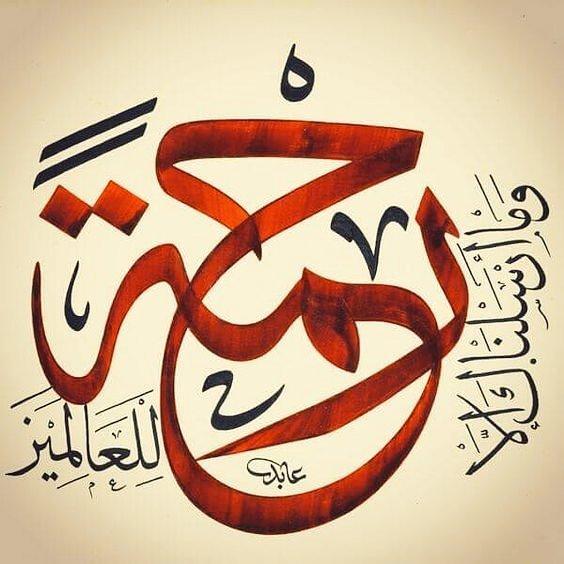 وَمَا أَرْسَلْنَاكَ إِلَّا
رَحْمَةً
لِلْعَالَمِينَ
عابد